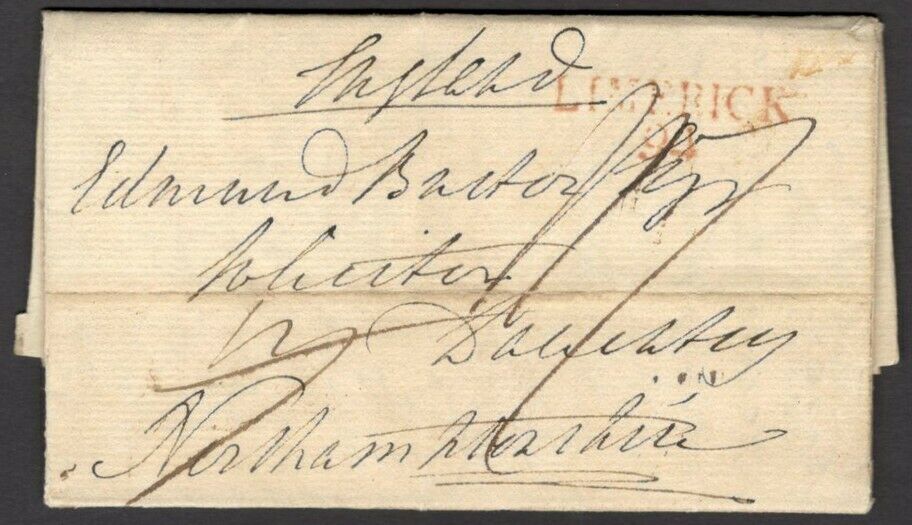 England
LIMERICK
94
Edmund Burton Esqr
Solicitor
Daventry
Northamptonshire